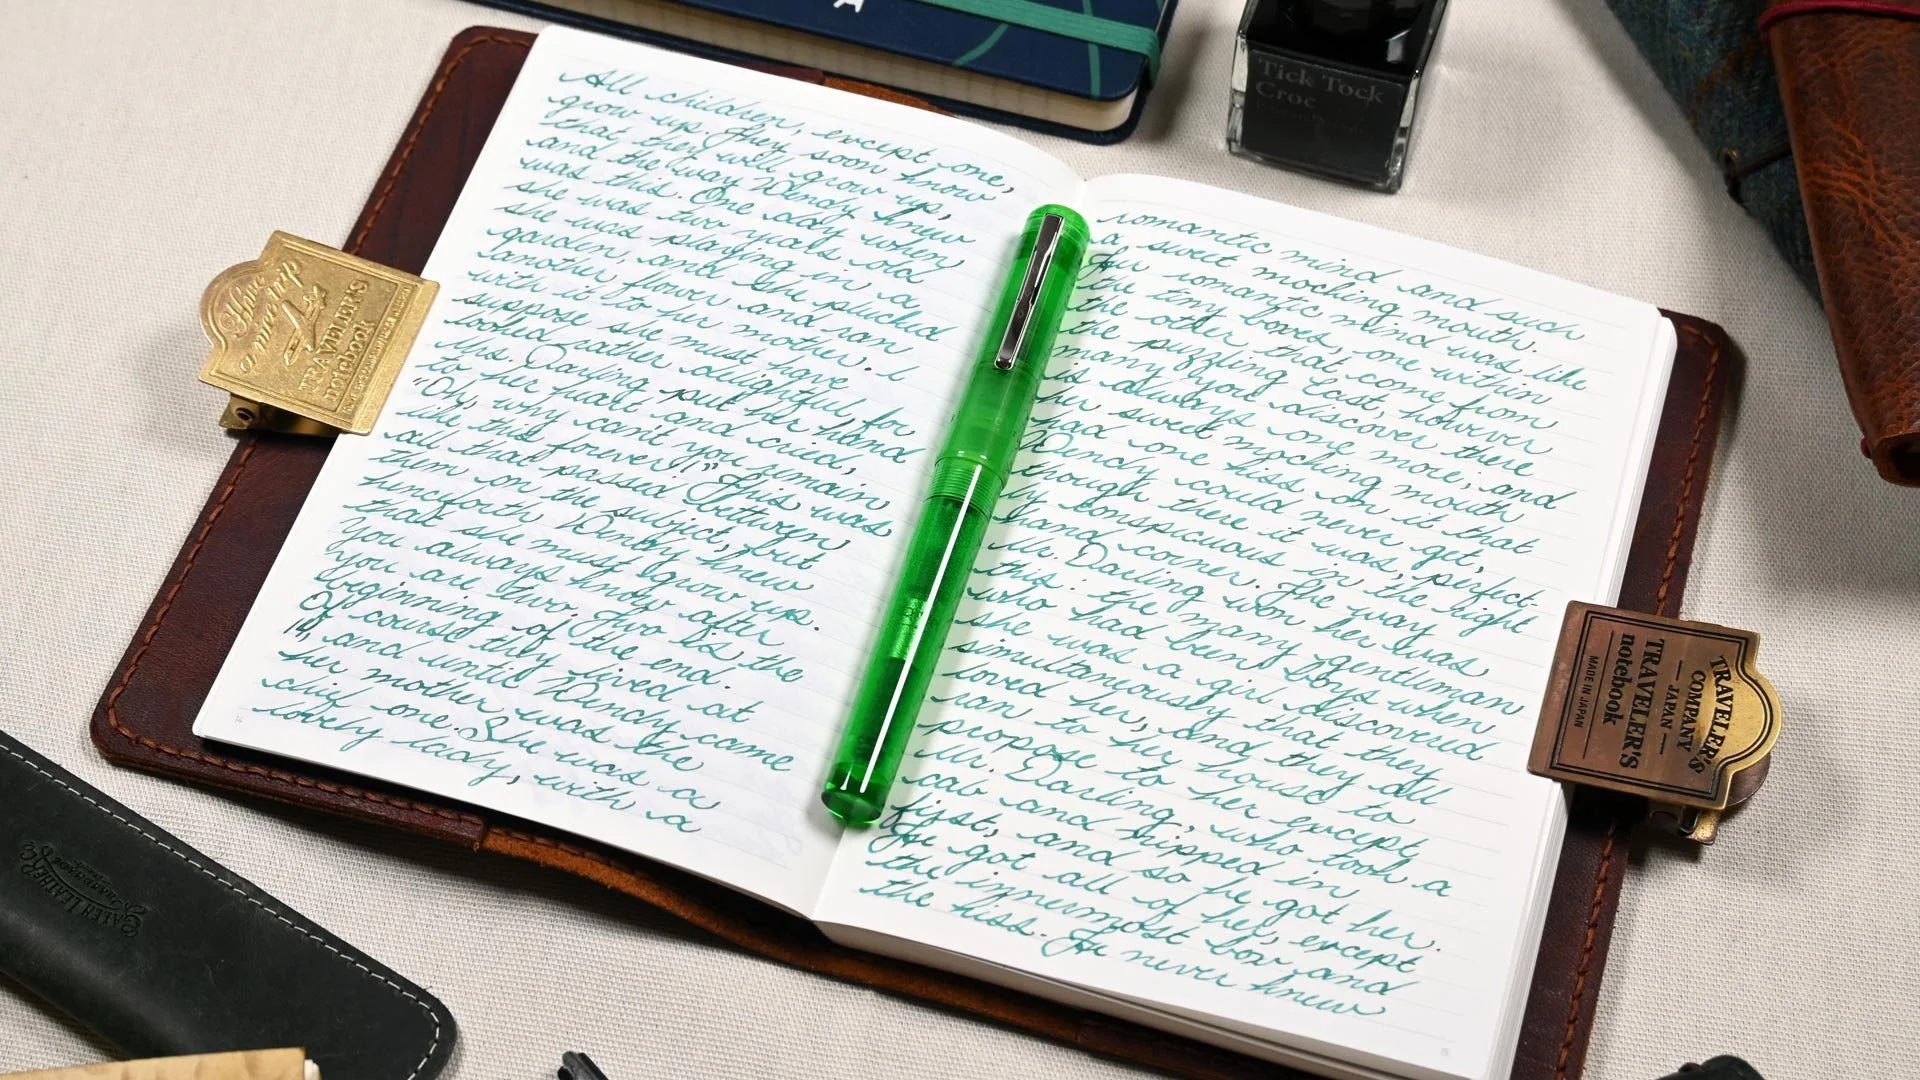 A
Tick Tock
Croc
All children, except one,
grow up. They soon know
that they will grow up,
and the way Wendy knew
was this. One day when
she was two years old
she was playing in a
garden, and she plucked
another flower and ran
with it to her mother. I
suppose she must have
looked rather delightful, for
Mrs. Darling put her hand
to her heart and cried,
"Oh, why can't you remain
like this forever!" This was
all that passed between
them on the subject, but
henceforth Wendy knew
that she must grow up.
You always know after
you are two. Two is the
beginning of the end.
Of course they lived at
14, and until Wendy came
her mother was the
chief one. She was a
lovely lady, with a
romantic mind and such
a sweet mocking mouth.
Her romantic mind was like
the tiny boxes, one within
the other that come from
the puzzling East, however
many you discover there
is always one more, and
her sweet mocking mouth
had one kiss on it that
Wendy could never get,
though there it was, perfect-
ly conspicuous in the right
hand corner. The way
Mr. Darling won her was
this: the many gentleman
who had been boys when
she was a girl discovered
simultaneously that they
loved her, and they all
ran to her house to
propose to her except
Mr. Darling, who took a
cab and nipped in
first, and so he got her.
He got all of her, except
the innermost box and
the kiss. He never knew
Have
a nice trip
TRAVELER'S
notebook
TRAVELER'S
COMPANY
JAPAN
TRAVELER'S
notebook
MADE IN JAPAN
GALEN LEATHER CO